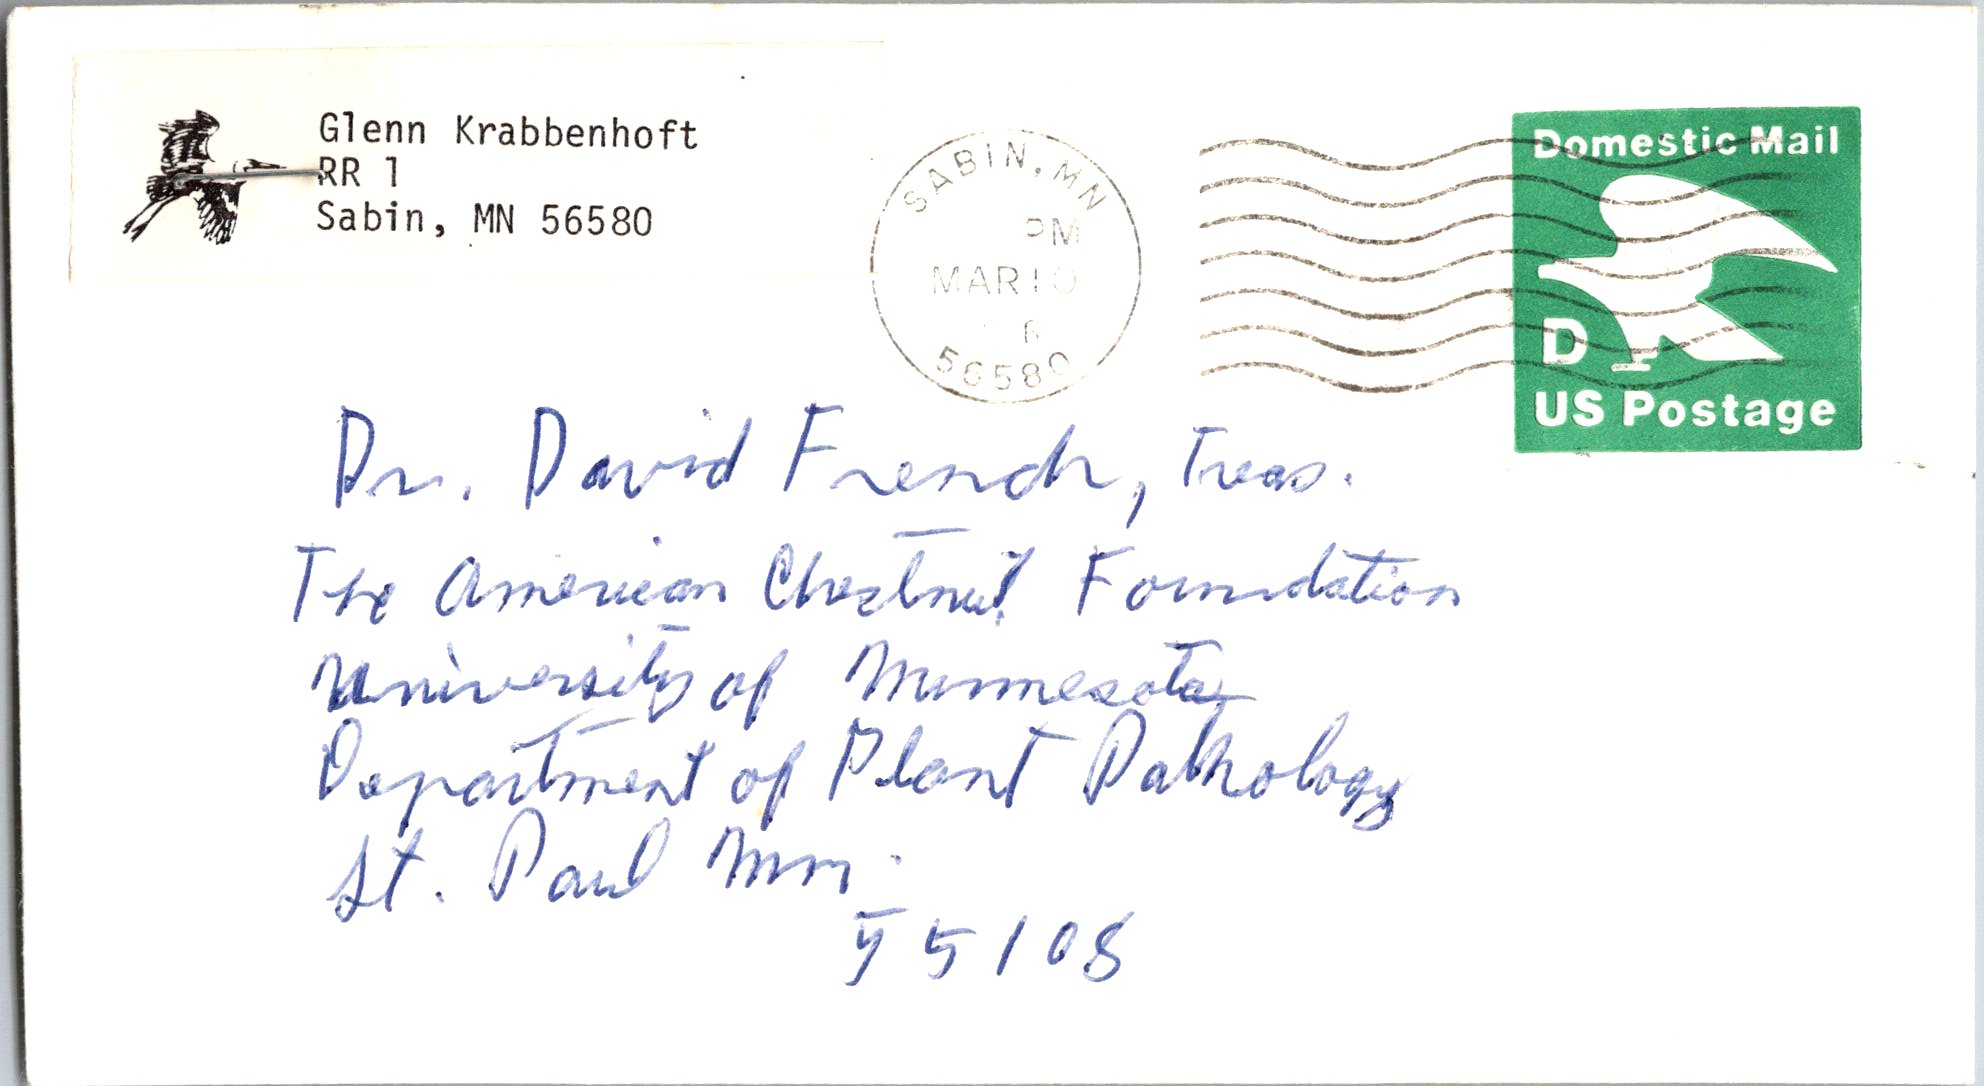 Glenn Krabbenhoft
RR 1
Sabin, MN 56580
SABIN, MN
PM
MAR 10
6
56580
Domestic Mail
D
US Postage
Dr. David French, Treas.
The American Chestnut Foundation
University of Minnesota
Department of Plant Pathology
St. Paul Mn.
55108